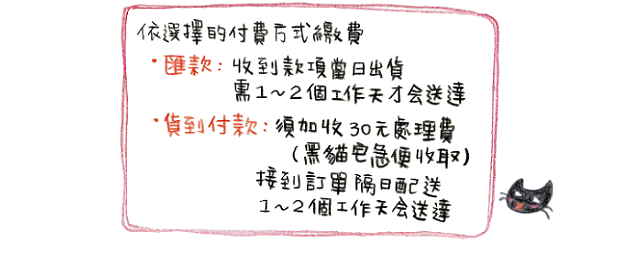 依選擇的付費方式繳費
·匯款:收到款項當日出貨
需1~2個工作天才会送達
·貨到付款:須加收30元處理費
(黑貓宅急便收取)
接到訂單隔日配送
1~2個工作天会送達